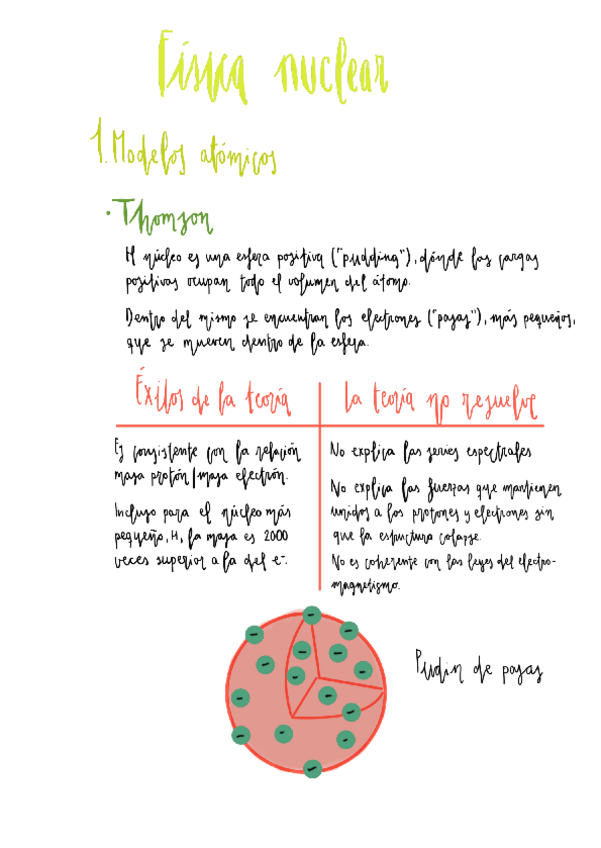 Física nuclear
1. Modelos atómicos
· Thomson
El núcleo es una esfera positiva ("pudding"), dónde las cargas
positivas ocupan todo el volumen del átomo.
Dentro del mismo se encuentran los electrones ("pasas"), más pequeños,
que se mueven dentro de la esfera.
Éxitos de la teoría
Es consistente con la relación
masa protón/masa electrón.
Incluso para el núcleo más
pequeño, H, la masa es 2000
veces superior a la del e-.
La teoría no resuelve
No explica las series espectrales
No explica las fuerzas que mantienen
unidos a los protones y electrones sin
que la estructura colapse.
No es coherente con las leyes del electro-
magnetismo.
Pudin de pasas